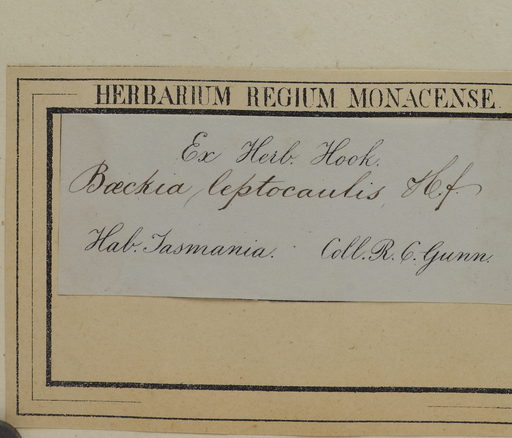 HERBARIUM REGIUM MONACENSE.
Ex Herb. Hook.
Bæckia leptocaulis H.f
Hab. Tasmania. Coll. R. C. Gunn.